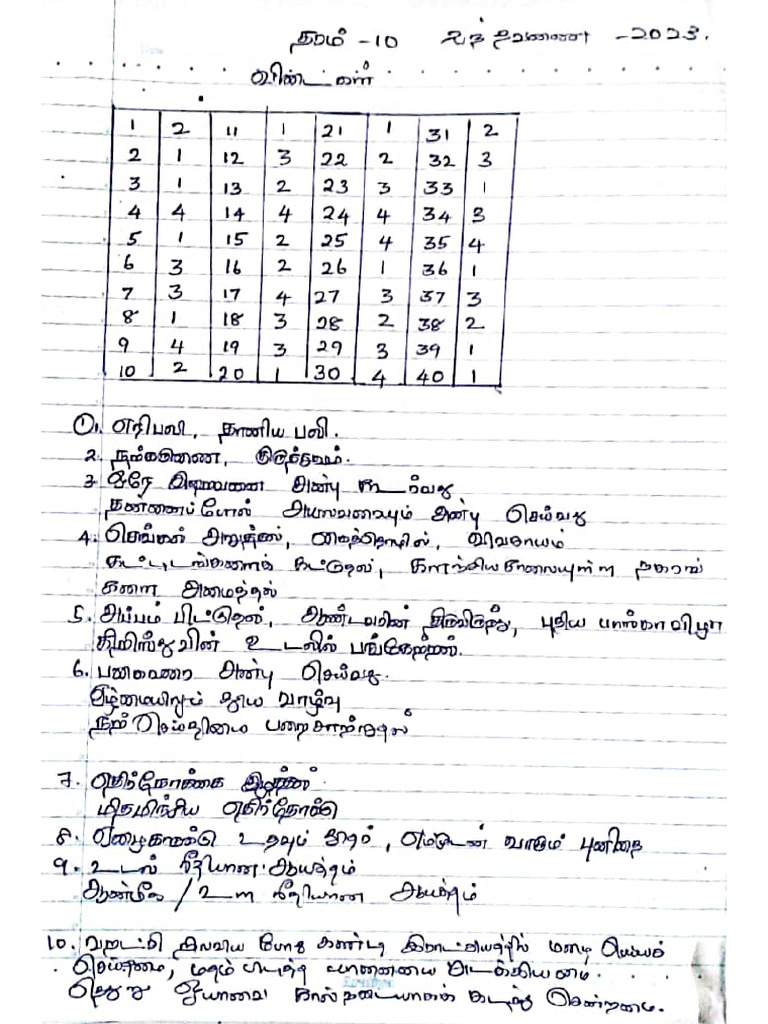 தரம் - 10 வத் வேணை - 2023.
விடைகள்
1 2 11 1 21 1 31 2
2 1 12 3 22 2 32 3
3 1 13 2 23 3 33 1
4 4 14 4 24 4 34 3
5 1 15 2 25 4 35 4
6 3 16 2 26 1 36 1
7 3 17 4 27 3 37 3
8 1 18 3 28 2 38 2
9 4 19 3 29 3 39 1
10 2 20 1 30 4 40 1
1. எரிபலி, தானிய பலி.
2. நற்கருணை, குருத்துவம்.
3. ஒரே இறைவனை அன்பு கூர்வது
தன்னைப்போல் அயலவரையும் அன்பு செய்வது
4. செங்கல் அறுத்தல், கைத்தொழில், விவசாயம்
கட்டிடங்களைக் கட்டுதல், களஞ்சியசாலையுள்ள நகரங்
களை அமைத்தல்
5. அப்பம் பிட்டுதல், ஆண்டவரின் திருவிருந்து, புதிய பாஸ்காவிழா
கிறிஸ்துவின் உடலில் பங்கேற்றல்.
6. பகைவரை அன்பு செய்வது.
ஏழ்மையிலும் தூய வாழ்வு
நற்செய்தியை பறைசாற்றுதல்
7. எதிர்நோக்கை இழத்தல்
மிதமிஞ்சிய எதிர்நோக்கு
8. ஏழைகளுக்கு உதவும் கரம், எம்முடன் வாழும் புனிதை
9. உடல் ரீதியான ஆயத்தம்
ஆன்மீக / உள ரீதியான ஆயத்தம்
10. வறட்சி நிலவிய போது கண்டி இராட்சியத்தில் மழை பெய்யச்
செய்தமை, மதம் பிடித்த யானையை அடக்கியமை.
தெதுறு ஓயாவை கால்நடையாகக் கடந்து சென்றமை.